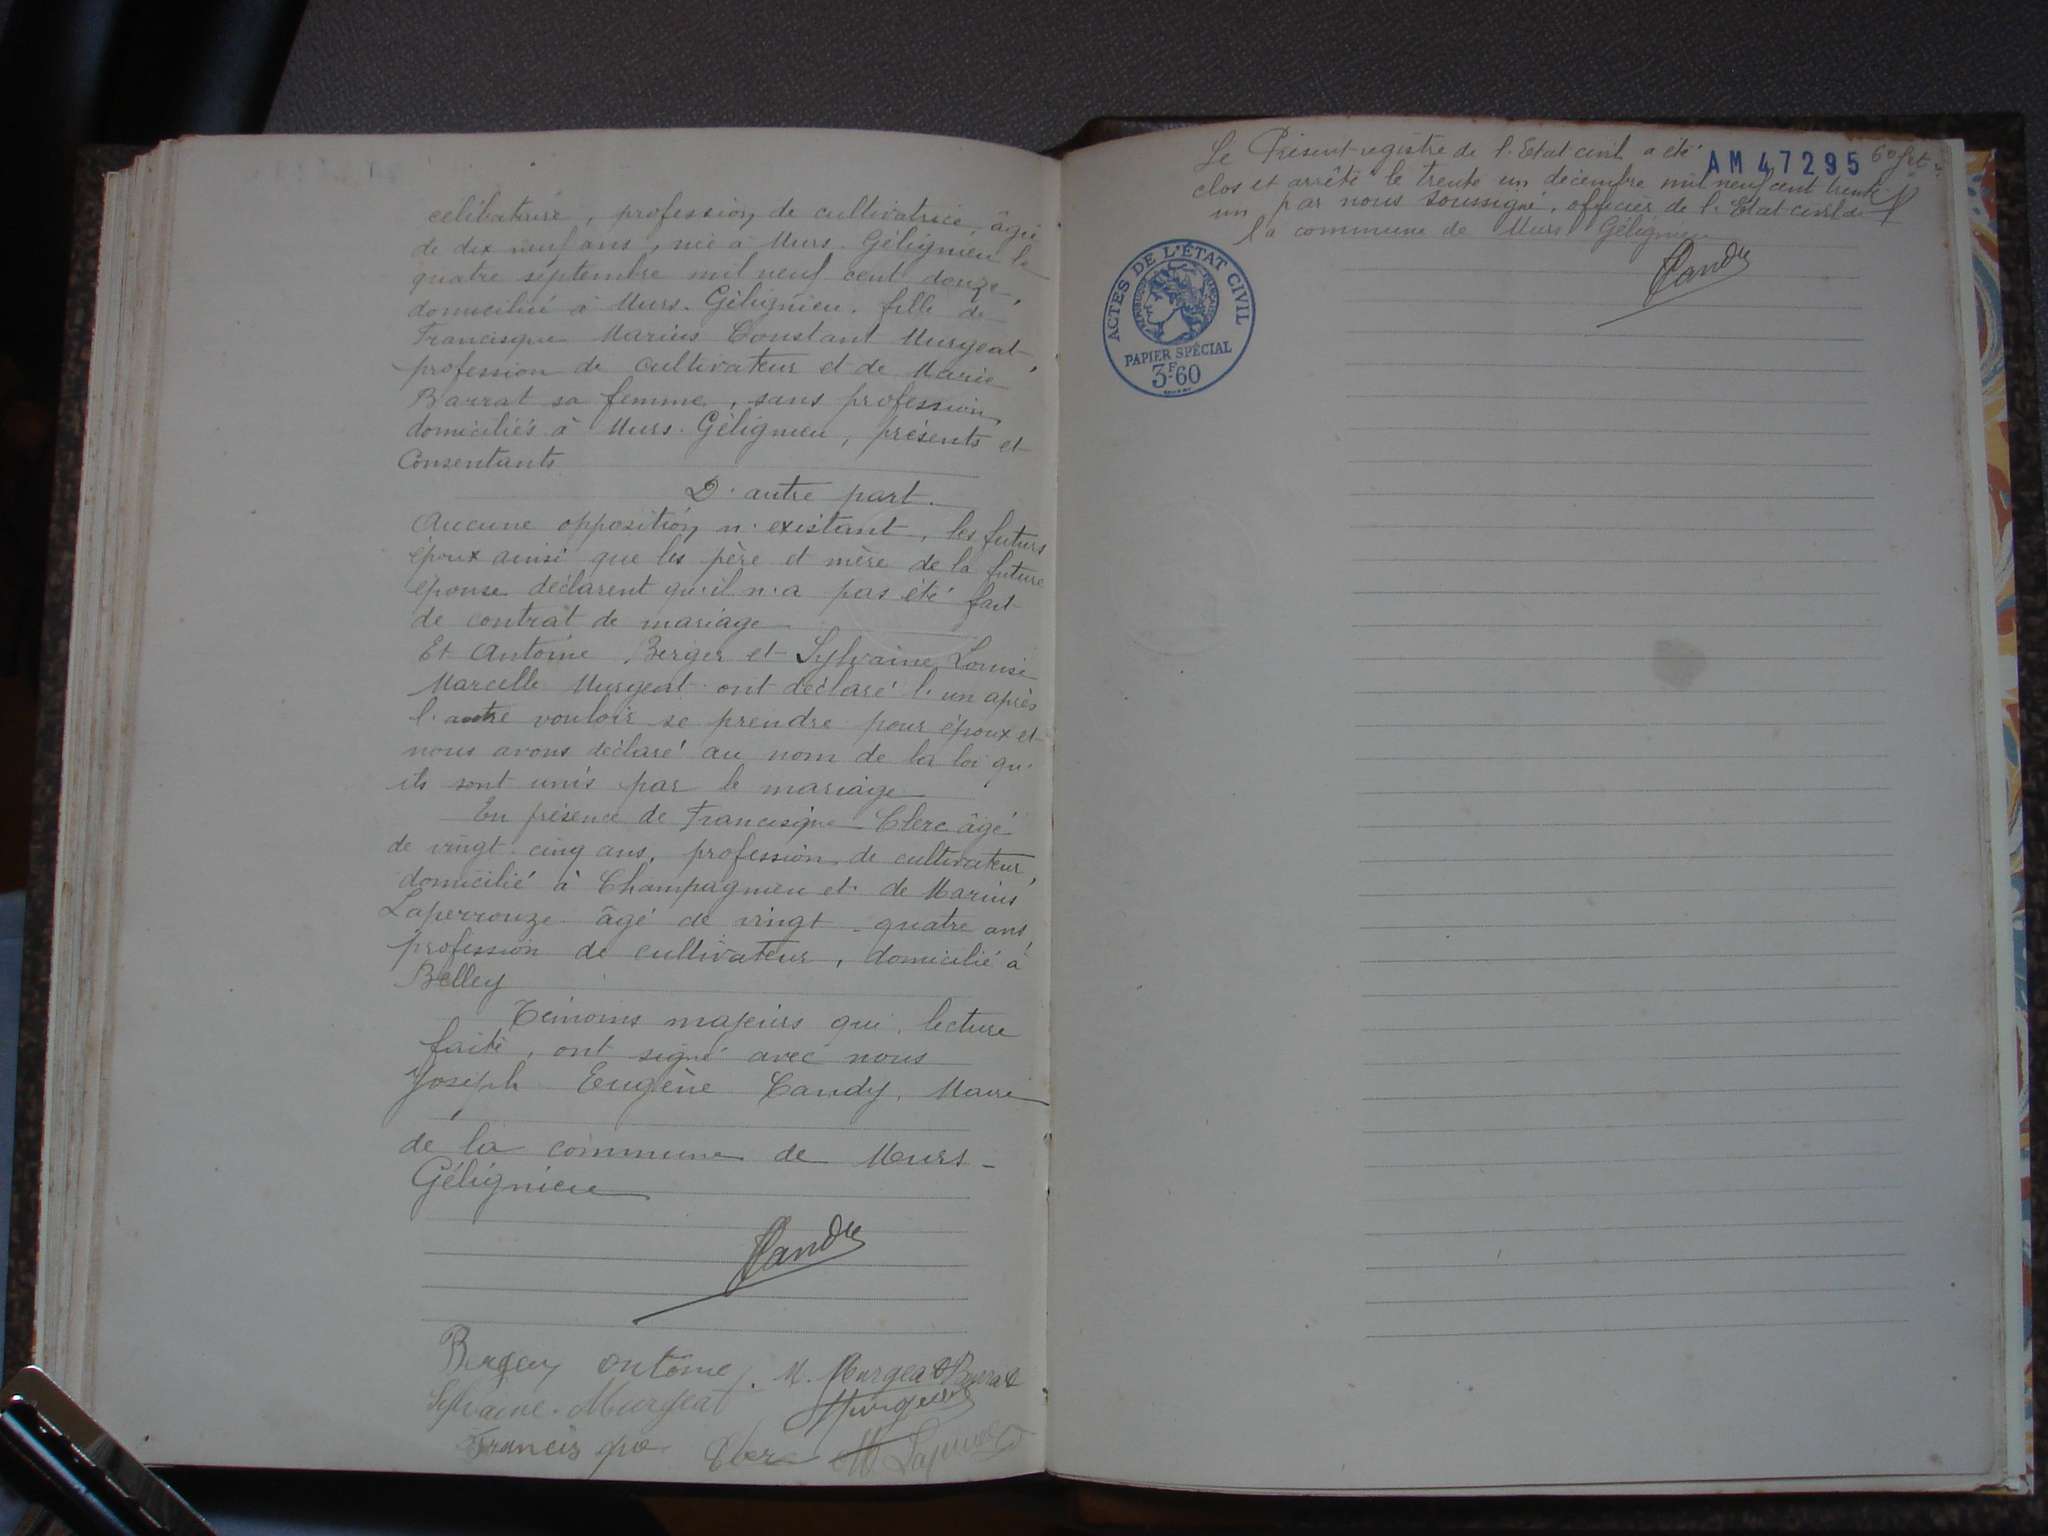 célibataire, profession de cultivatrice, âgée
de dix neuf ans, née à Murs-Gélignieu le
quatre septembre mil neuf cent douze,
domiciliée à Murs-Gélignieu, fille de
Francisque Marius Constant Murgeat,
profession de cultivateur et de Marie
Barrat sa femme, sans profession,
domiciliés à Murs-Gélignieu, présents et
Consentants
D'autre part.
Aucune opposition n'existant, les futurs
époux ainsi que les père et mère de la future
épouse déclarent qu'il n'a pas été fait
de contrat de mariage
Et Antoine Berger et Sylvaine Louise
Marcelle Murgeat ont déclaré l'un après
l'autre vouloir se prendre pour époux et
nous avons déclaré au nom de la loi qu'
ils sont unis par le mariage
En présence de Francisque Clerc âgé
de vingt cinq ans, profession de cultivateur,
domicilié à Champagnieu et de Marius
Laperrouze âgé de vingt-quatre ans,
profession de cultivateur, domicilié à
Belley
Témoins majeurs qui, lecture
faite, ont signé avec nous
Joseph Eugène Candy, Maire
de la commune de Murs-
Gélignieu
Candy
Berger Antoine. M. Murgeat Barrat
Sylvaine Murgeat Murgeat
Francisque Clerc M Laperrouze
Le Présent registre de l'Etat civil a été
AM 47295
clos et arrêté le trente un décembre mil neuf cent trente
un par nous soussigné, officier de l'Etat civil de
la commune de Murs Gélignieu
Candy
ACTES DE L'ÉTAT CIVIL
RÉPUBLIQUE FRANÇAISE
PAPIER SPÉCIAL
3F60